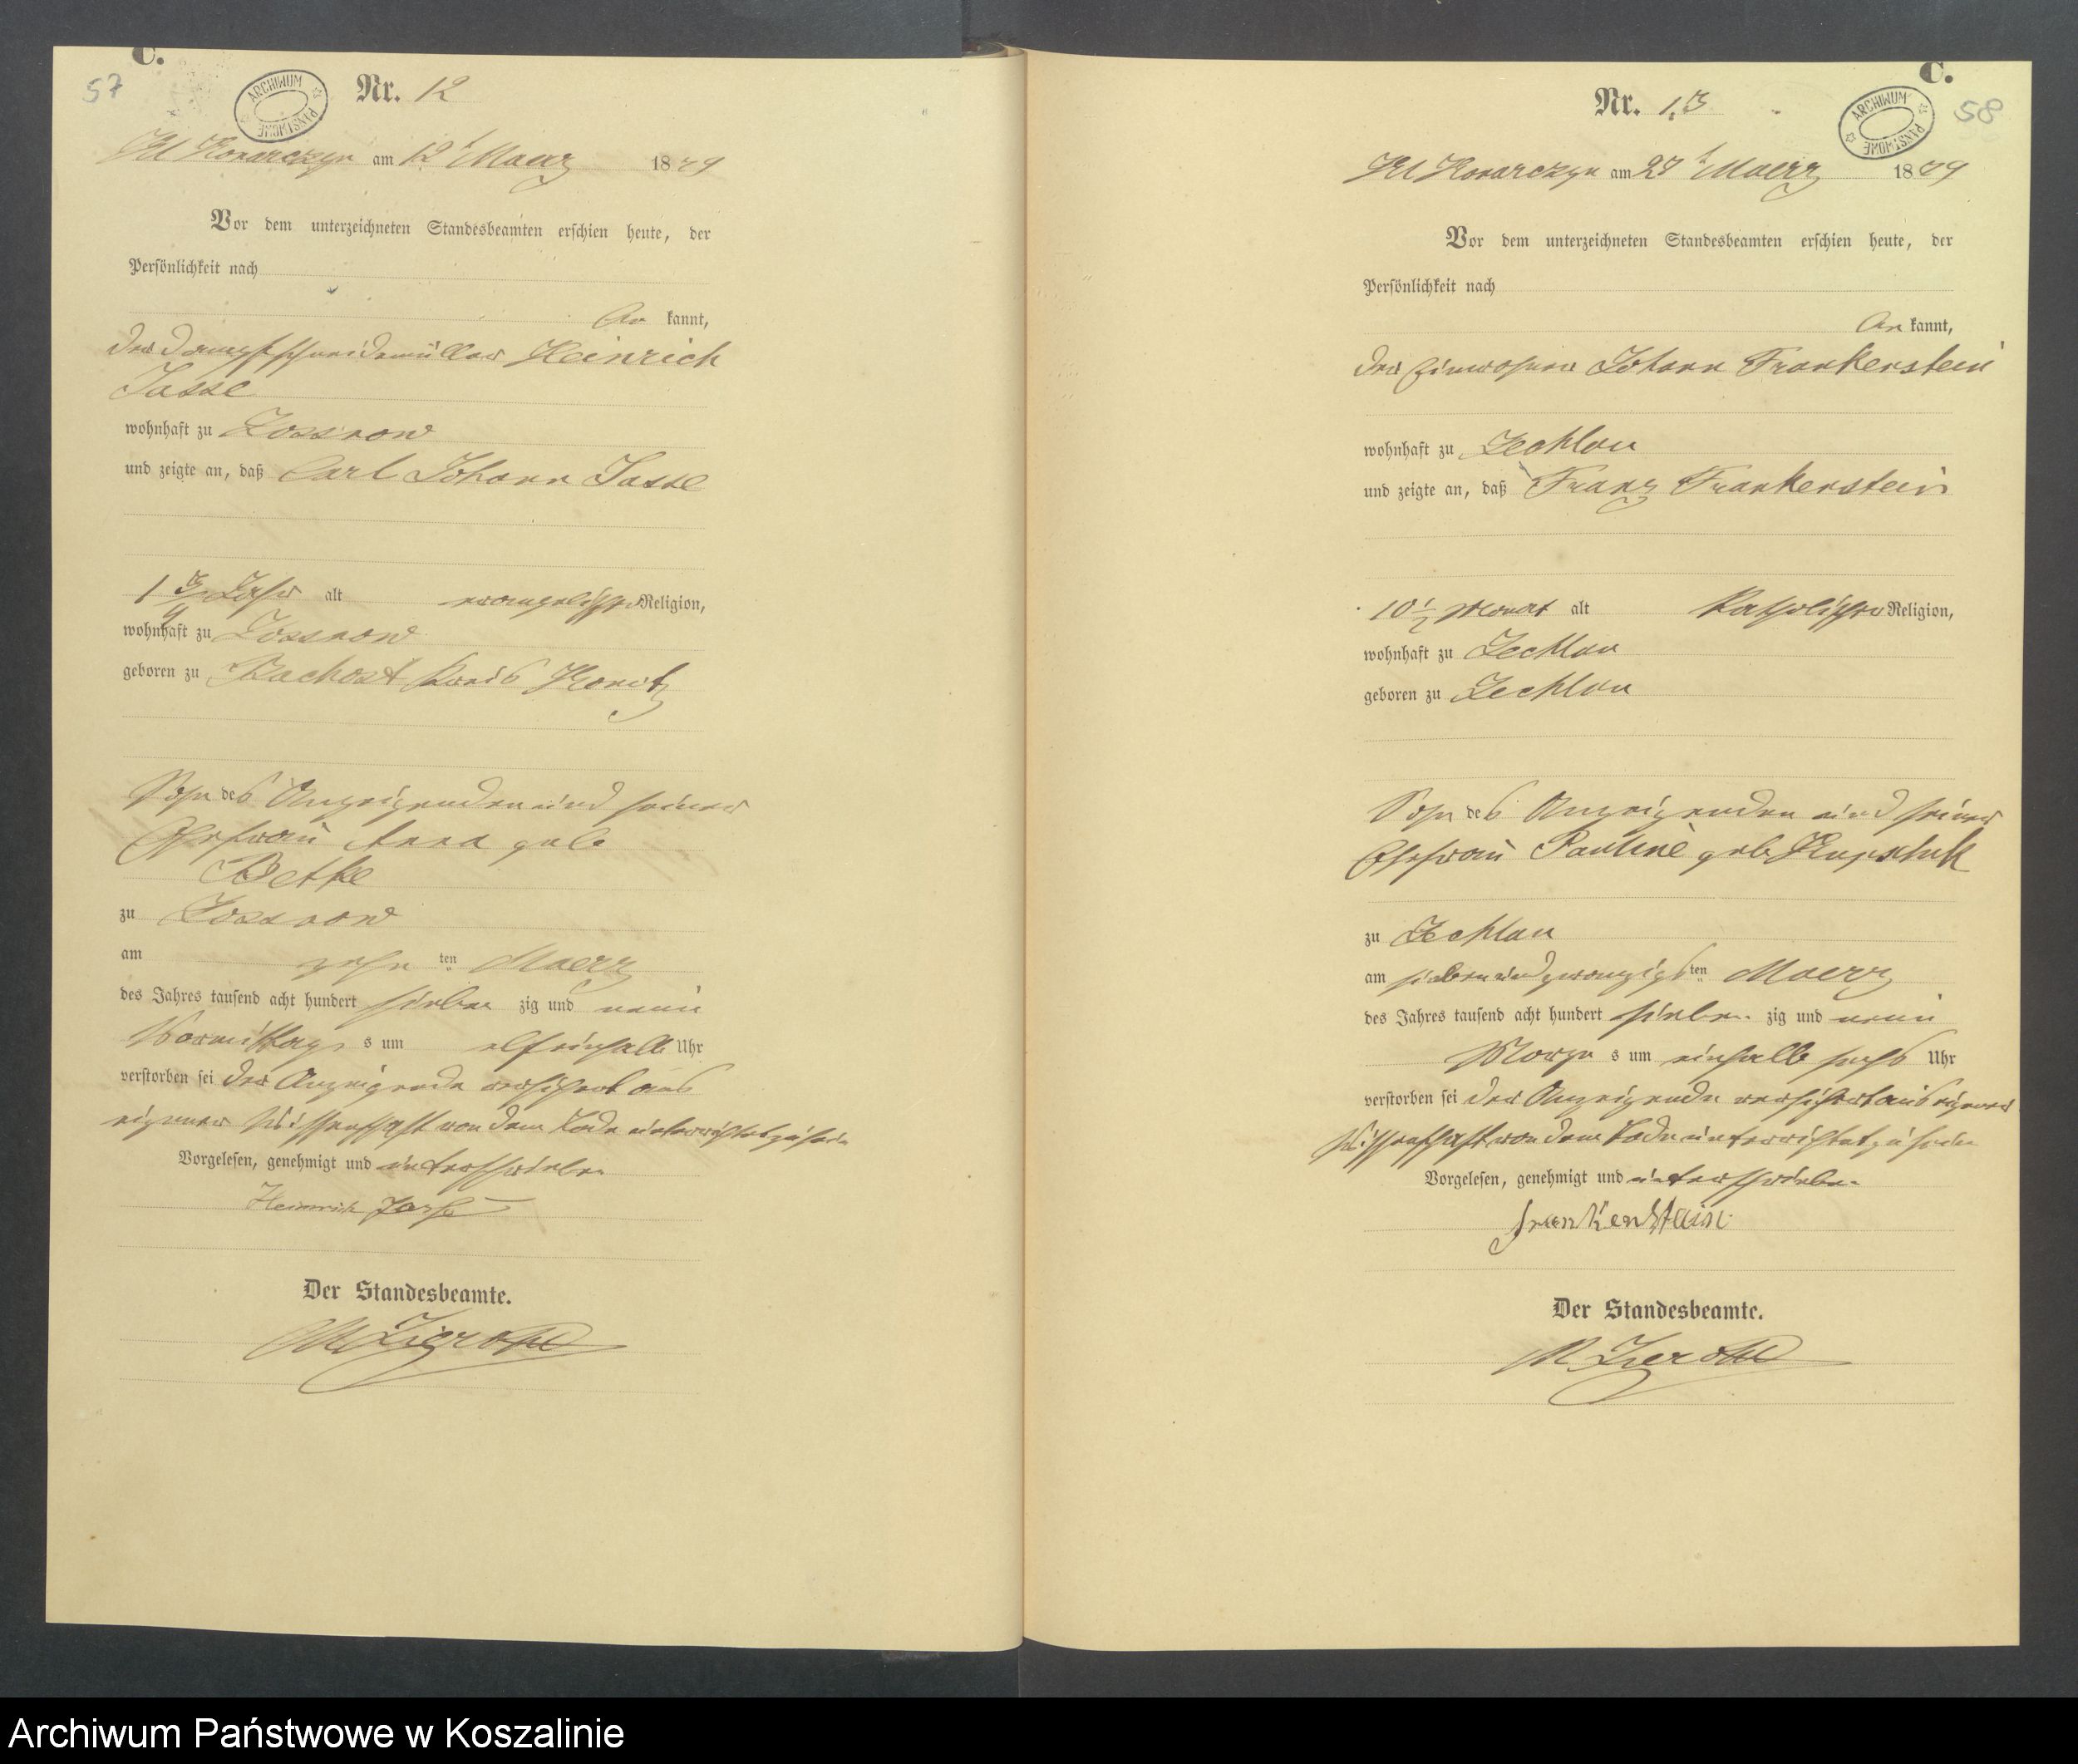 C.
57
ARCHIWUM PAŃSTWOWE
Nr. 12
Kl Konarczyn am 12t Maerz 1879
Vor dem unterzeichneten Standesbeamten erschien heute, der
Persönlichkeit nach
kannt,
der Dampfschneidemüller Heinrich
Jasse
wohnhaft zu Zossnow
und zeigte an, daß Carl Johann Jasse
1 3/4 Jahr alt evangelischer Religion,
wohnhaft zu Zossnow
geboren zu Kreis Konitz
Sohn des Anzeigenden und seiner
Ehefrau Anna geb
Betke
zu Zossnow
am zehn ten Maerz
des Jahres tausend acht hundert sieben zig und neun
Vormittag s um elfeinhalb Uhr
verstorben sei der Anzeigende versichert aus
eigener Wissenschaft von dem Tode unterrichtet zu sein
Vorgelesen, genehmigt und unterschrieben
Heinrich Jasse
Der Standesbeamte.
C.
58
ARCHIWUM PAŃSTWOWE
Nr. 13
Kl Konarczyn am 27t Maerz 1879
Vor dem unterzeichneten Standesbeamten erschien heute, der
Persönlichkeit nach
kannt,
der Einwohner Johann Frankenstein
wohnhaft zu Zechlau
und zeigte an, daß Franz Frankenstein
10 1/2 Monat alt katholischer Religion,
wohnhaft zu Zechlau
geboren zu Zechlau
Sohn des Anzeigenden und seiner
Ehefrau Pauline geb
zu Zechlau
am siebenundzwanzigsten Maerz
des Jahres tausend acht hundert sieben zig und neun
Morgen s um einhalb sechs Uhr
verstorben sei der Anzeigende versichert aus eigener
Wissenschaft von dem Tode unterrichtet zu sein
Vorgelesen, genehmigt und unterschrieben
Frankenstein
Der Standesbeamte.
Archiwum Państwowe w Koszalinie